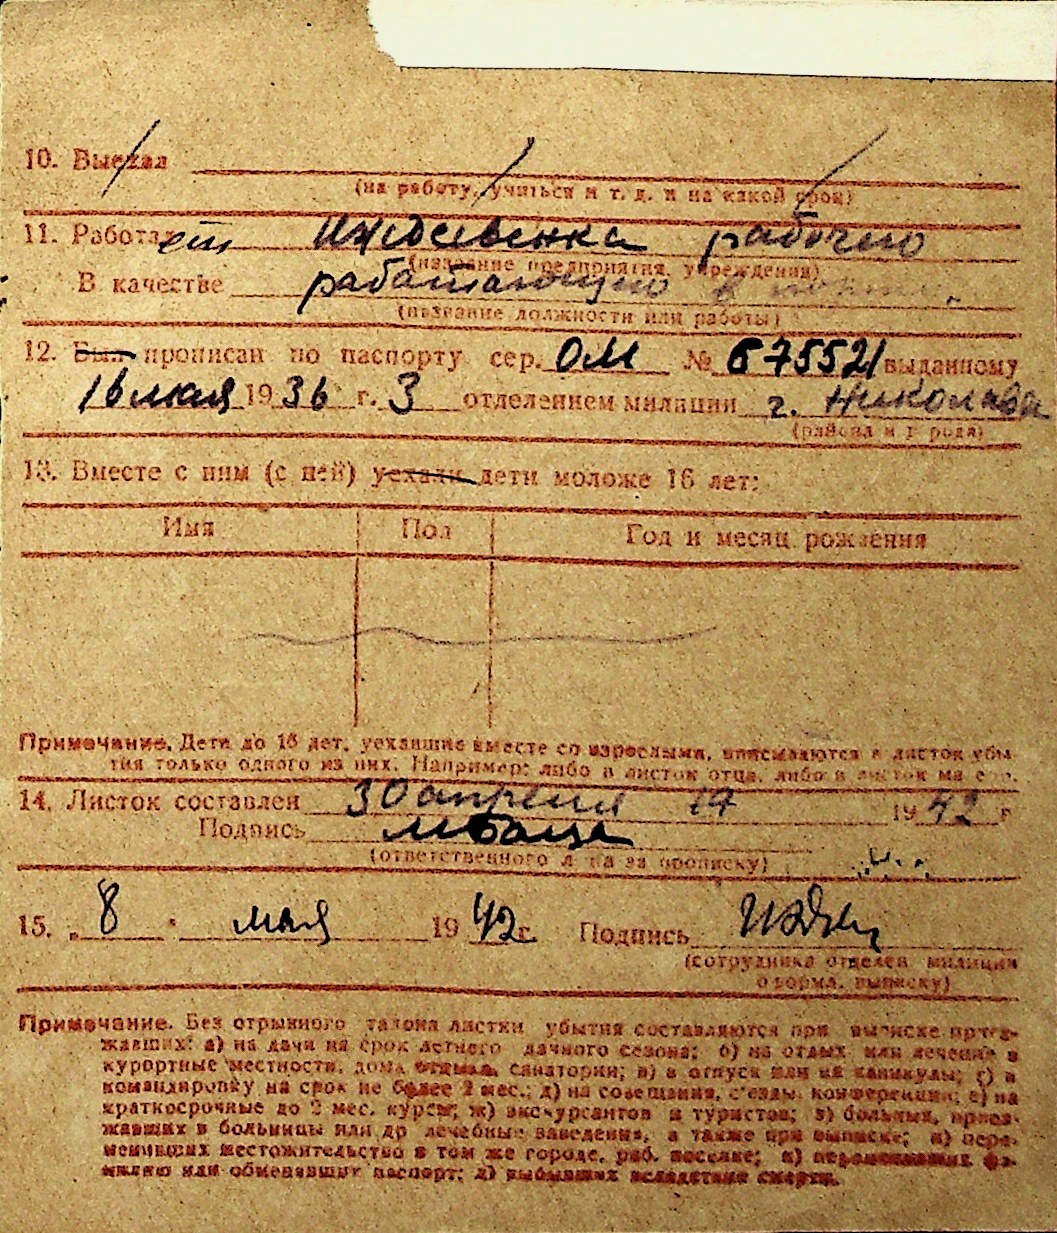 10. Выехал
(на работу, учиться и т. д. и на какой срок)
11. Работает иждивенка рабочего
(название предприятия, учреждения)
В качестве работающего в
(название должности или работы)
12. Был прописан по паспорту сер. ОМ № 675521 выданному
16 мая 1936 г. 3 отделением милиции г. Николаева
(района и города)
13. Вместе с ним (с ней) уехали дети моложе 16 лет:
Имя Пол Год и месяц рождения
Примечание. Дети до 16 лет, уехавшие вместе со взрослыми, вписываются в листок убы-
тия только одного из них. Например: либо в листок отца, либо в листок матери.
14. Листок составлен 30 апреля 1942 г
Подпись
(ответственного лица за прописку)
15. „8" мая 1942 г. Подпись
(сотрудника отделен. милиции
оформ. выписку)
Примечание. Без отрывного талона листки убытия составляются при выписке приез-
жавших: а) на дачи на срок летнего дачного сезона; б) на отдых или лечение в
курортные местности, дома отдыха, санатории; в) в отпуск или на каникулы; г) в
командировку на срок не более 2 мес.; д) на совещания, с'езды, конференции; е) на
краткосрочные до 2 мес. курсы; ж) экскурсантов и туристов; з) больных, приез-
жавших в больницы или др лечебные заведения, а также при выписке; и) пере-
менивших местожительство в том же городе, раб. поселке; к) переменивших фа-
милию или обменявших паспорт; л) выбывших вследствие смерти.